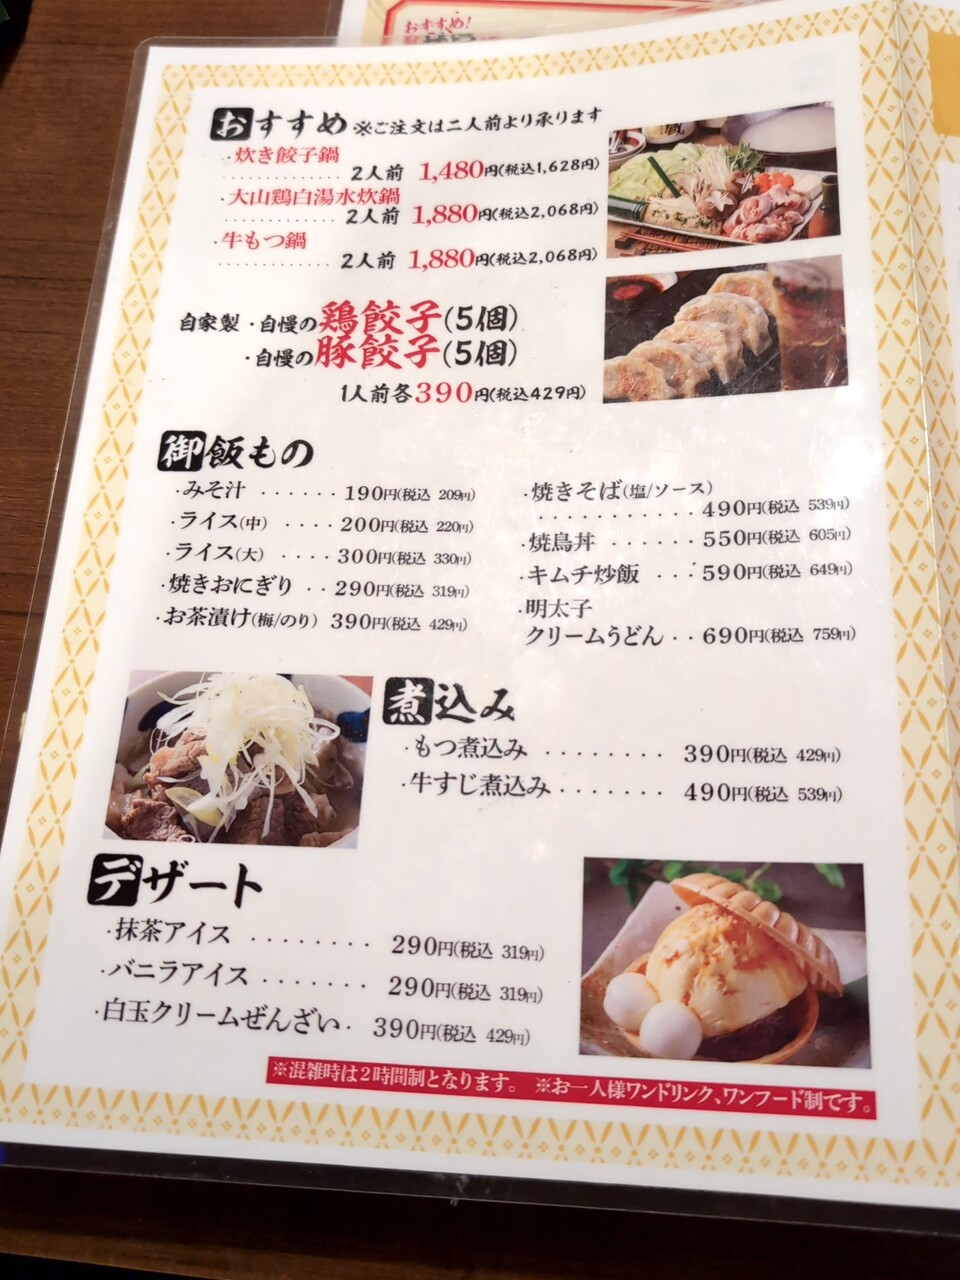 おすすめ!
おすすめ ※ご注文は二人前より承ります
・炊き餃子鍋
............ 2人前 1,480円(税込1,628円)
・大山鶏白湯水炊鍋
............ 2人前 1,880円(税込2,068円)
・牛もつ鍋
............ 2人前 1,880円(税込2,068円)
自家製・自慢の鶏餃子(5個)
・自慢の豚餃子(5個)
1人前各390円(税込429円)
御飯もの
・みそ汁 ...... 190円(税込 209円)
・ライス(中) .... 200円(税込 220円)
・ライス(大) .... 300円(税込 330円)
・焼きおにぎり .. 290円(税込 319円)
・お茶漬け(梅/のり) 390円(税込 429円)
・焼きそば(塩/ソース)
............ 490円(税込 539円)
・焼鳥丼 ...... 550円(税込 605円)
・キムチ炒飯 ... 590円(税込 649円)
・明太子
クリームうどん .. 690円(税込 759円)
煮込み
・もつ煮込み ........ 390円(税込 429円)
・牛すじ煮込み ....... 490円(税込 539円)
デザート
・抹茶アイス ........ 290円(税込 319円)
・バニラアイス ....... 290円(税込 319円)
・白玉クリームぜんざい . 390円(税込 429円)
※混雑時は2時間制となります。 ※お一人様ワンドリンク、ワンフード制です。